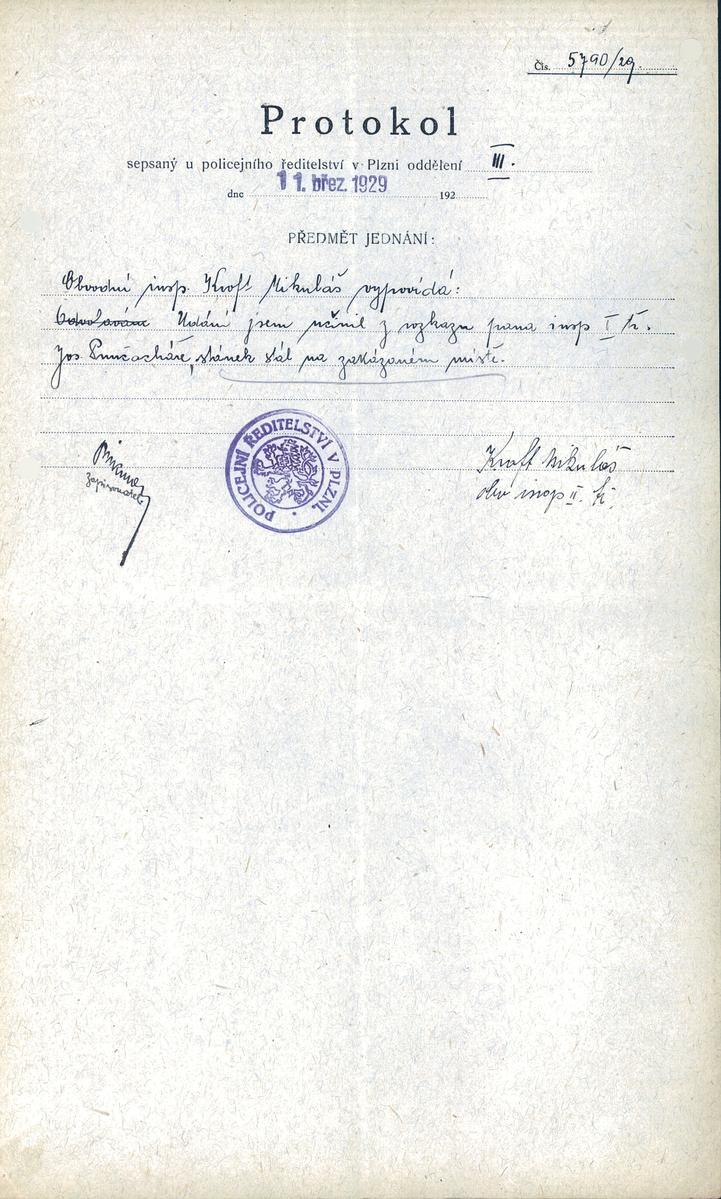 Čís. 5790/29.
Protokol
sepsaný u policejního ředitelství v Plzni oddělení III.
dne 11. břez. 1929 192
PŘEDMĚT JEDNÁNÍ:
Obvodní insp. Kroft Mikuláš vypovídá:
Udání jsem učinil z rozkazu pana insp I tř.
Jos. Punčocháře, stánek stál na zakázaném místě.
POLICEJNÍ ŘEDITELSTVÍ V PLZNI.
Kroft Mikuláš
obv insp II. tř.
zapisovatel